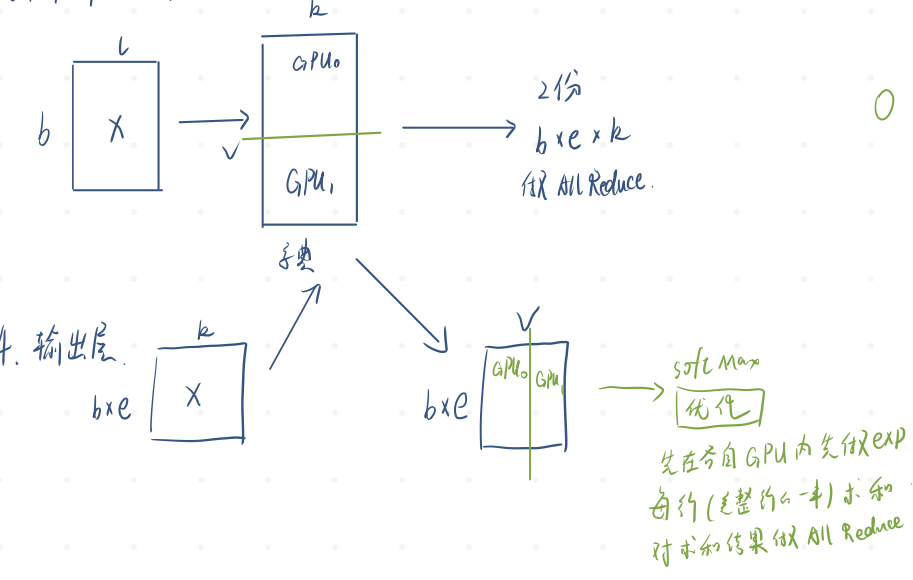 k
l
GPU₀
b
X
V
GPU₁
2份
b×e×k
做 All Reduce.
字典
4、输出层.
k
b×e
X
V
b×e
GPU₀
GPU₁
softMax
优化
先在各自GPU内先做exp
每行(是整行的一半)求和
对求和结果做 All Reduce